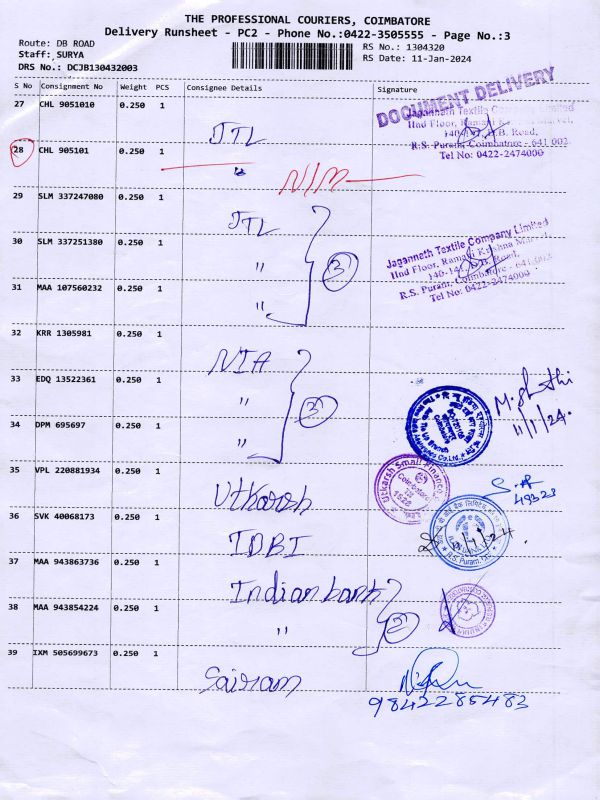 THE PROFESSIONAL COURIERS, COIMBATORE
Delivery Runsheet - PC2 - Phone No.:0422-3505555 - Page No.:3
Route: DB ROAD
Staff: SURYA
DRS No.: DCJB130432003
RS No.: 1304320
RS Date: 11-Jan-2024
S No Consignment No Weight PCS Consignee Details Signature
27 CHL 9051010 0.250 1 JTL
DOCUMENT DELIVERY
Jagannath Textile Company Limited
IInd Floor,
D.B. Road,
R.S. Puram, Coimbatore - 641 002.
Tel No: 0422-2474000
28 CHL 905101 0.250 1 " NIM
29 SLM 337247080 0.250 1 JTL
30 SLM 337251380 0.250 1 " 3
Jaganneth Textile Company Limited
IInd Floor, Ramani Krishna
D.B. Road,
R.S. Puram, Coimbatore - 641 002
Tel No: 0422-2474000
31 MAA 107560232 0.250 1 "
32 KRR 1305981 0.250 1 NIA
33 EDQ 13522361 0.250 1 " 3
11/1/24.
34 DPM 695697 0.250 1 "
35 VPL 220881934 0.250 1 Utkarsh
Utkarsh Small Finance
Coimbatore
49323
36 SVK 40068173 0.250 1 IDBI
R.S. Puram,
37 MAA 943863736 0.250 1 Indian bank
38 MAA 943854224 0.250 1 " 2
39 IXM 505699673 0.250 1 Sairam
9842285483